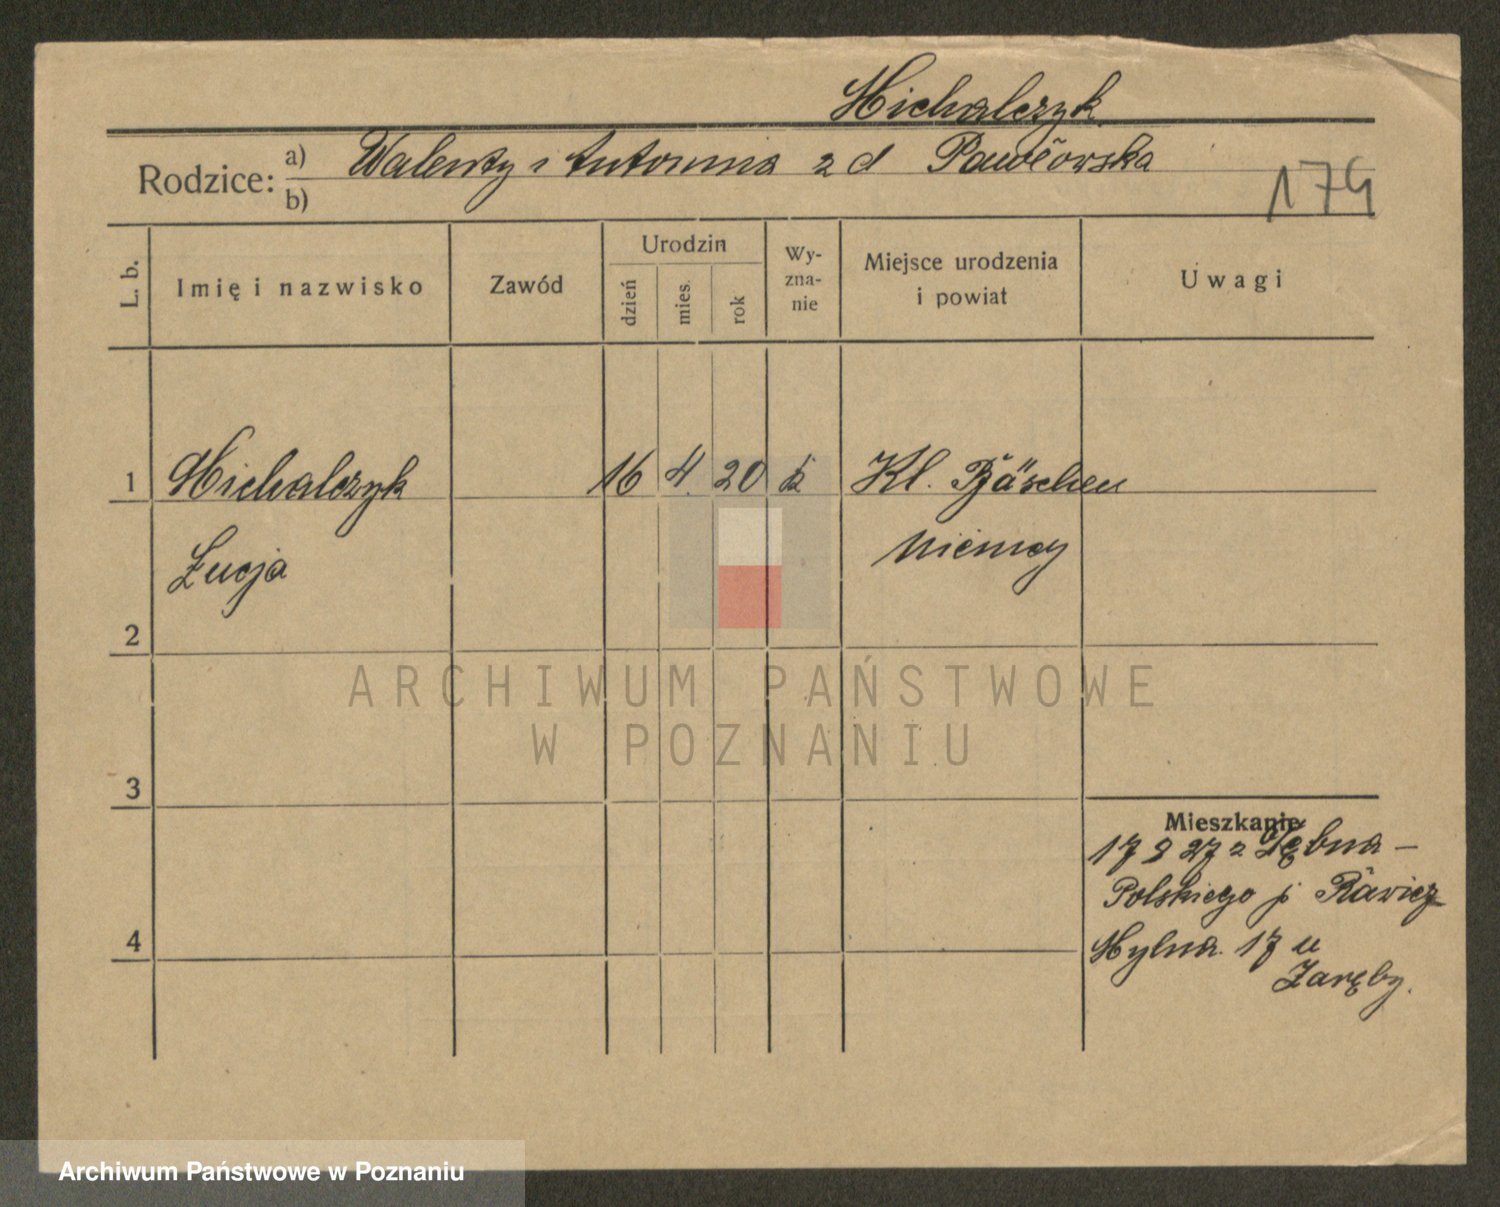 Michalczyk
Rodzice: a) Walenty i Antonina z d Pawłowska
b)
179
L. b.
Imię i nazwisko
Zawód
Urodzin
dzień
mies.
rok
Wy-
zna-
nie
Miejsce urodzenia
i powiat
Uwagi
1 Michalczyk 16 4. 20 k Kl. Bäschen
Łucja Niemcy
2
ARCHIWUM PAŃSTWOWE
W POZNANIU
3
Mieszkanie
17 9 27 z Dębna-
Polskiego p Rawicz
4
Mylna 17 u
Zaręby.
Archiwum Państwowe w Poznaniu